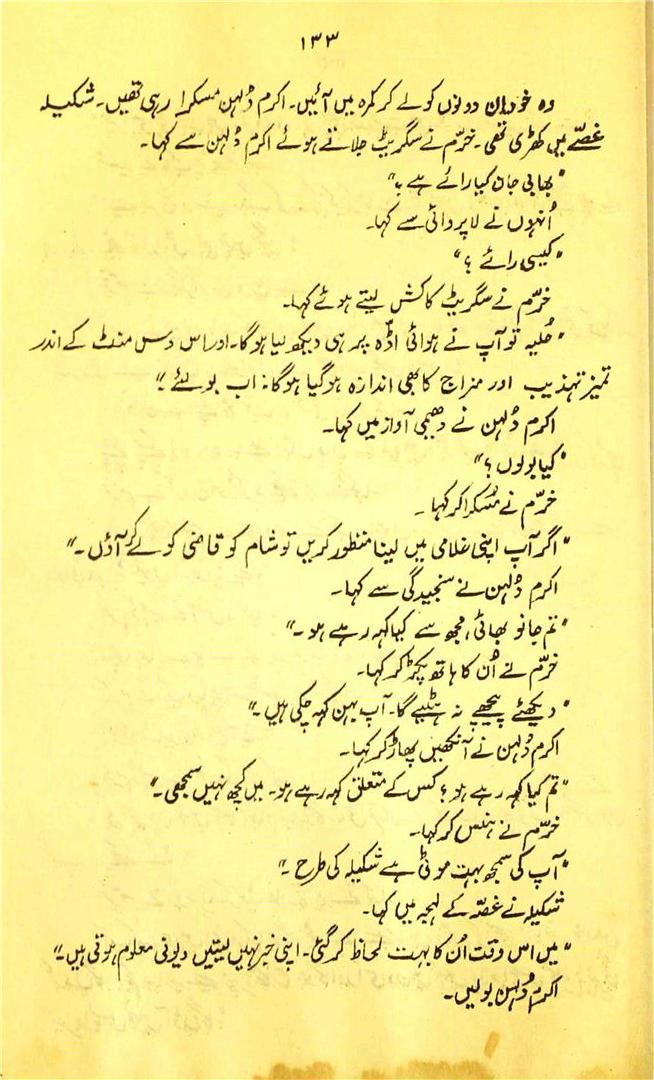 ۱۳۳
وہ خود ان دونوں کو لے کر کمرہ میں آئیں۔ اکرم دُلہن مسکرا رہی تھیں۔ شکیلہ
غصّے میں کھڑی تھی۔ خرّم نے سگریٹ جلاتے ہوئے اکرم دُلہن سے کہا۔
"بھابی جان کیا رائے ہے؟"
اُنہوں نے لاپروائی سے کہا۔
"کیسی رائے ؟"
خرّم نے سگریٹ کا کش لیتے ہوئے کہا۔
"حُلیہ تو آپ نے ہوائی اڈّہ پر ہی دیکھ لیا ہوگا۔ اور اس دس منٹ کے اندر
تمیز تہذیب اور مزاج کا بھی اندازہ ہو گیا ہوگا۔ اب بولئے"
اکرم دُلہن نے دھیمی آواز میں کہا۔
"کیا بولوں ؟"
خرّم نے مُسکرا کر کہا۔
"اگر آپ اپنی غلامی میں لینا منظور کریں تو شام کو قاضی کو لے کر آؤں۔"
اکرم دُلہن نے سنجیدگی سے کہا۔
"تم جانو بھائی، مجھ سے کیا کہہ رہے ہو۔"
خرّم نے اُن کا ہاتھ پکڑ کر کہا۔
"دیکھئے پیچھے نہ ہٹیے گا۔ آپ بہن کہہ چکی ہیں۔"
اکرم دُلہن نے آنکھیں پھاڑ کر کہا۔
"تم کیا کہہ رہے ہو؟ کس کے متعلق کہہ رہے ہو۔ میں کچھ نہیں سمجھی۔"
خرّم نے ہنس کر کہا۔
"آپ کی سمجھ بہت موٹی ہے شکیلہ کی طرح۔"
شکیلہ نے غصّہ کے لہجہ میں کہا۔
"میں اس وقت اُن کا بہت لحاظ کر گئی۔ اپنی خبر نہیں لیتیں دیونی معلوم ہوتی ہیں۔"
اکرم دُلہن بولیں۔